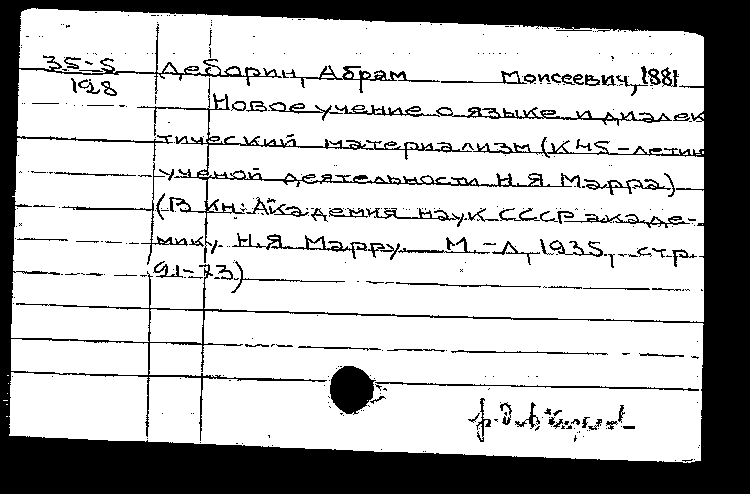 35-5
198
Деборин, Абрам Моисеевич, 1881
Новое учение о языке и диалек
тический материализм (К 45-летию
ученой деятельности Н.Я. Марра)
(В кн: Академия наук СССР акаде-
мику Н.Я. Марру. М.-Л, 1935, стр.
91-73)